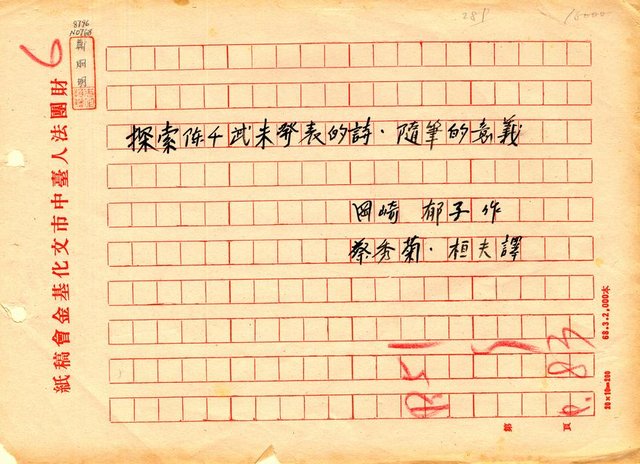 探索陈千武未發表的詩．隨筆的意義
岡崎 郁子作
蔡秀菊．桓夫譯
財團法人臺中市文化基金會稿紙
6
P.51
P.83
第 頁
68.3.2,000本
20×10=200